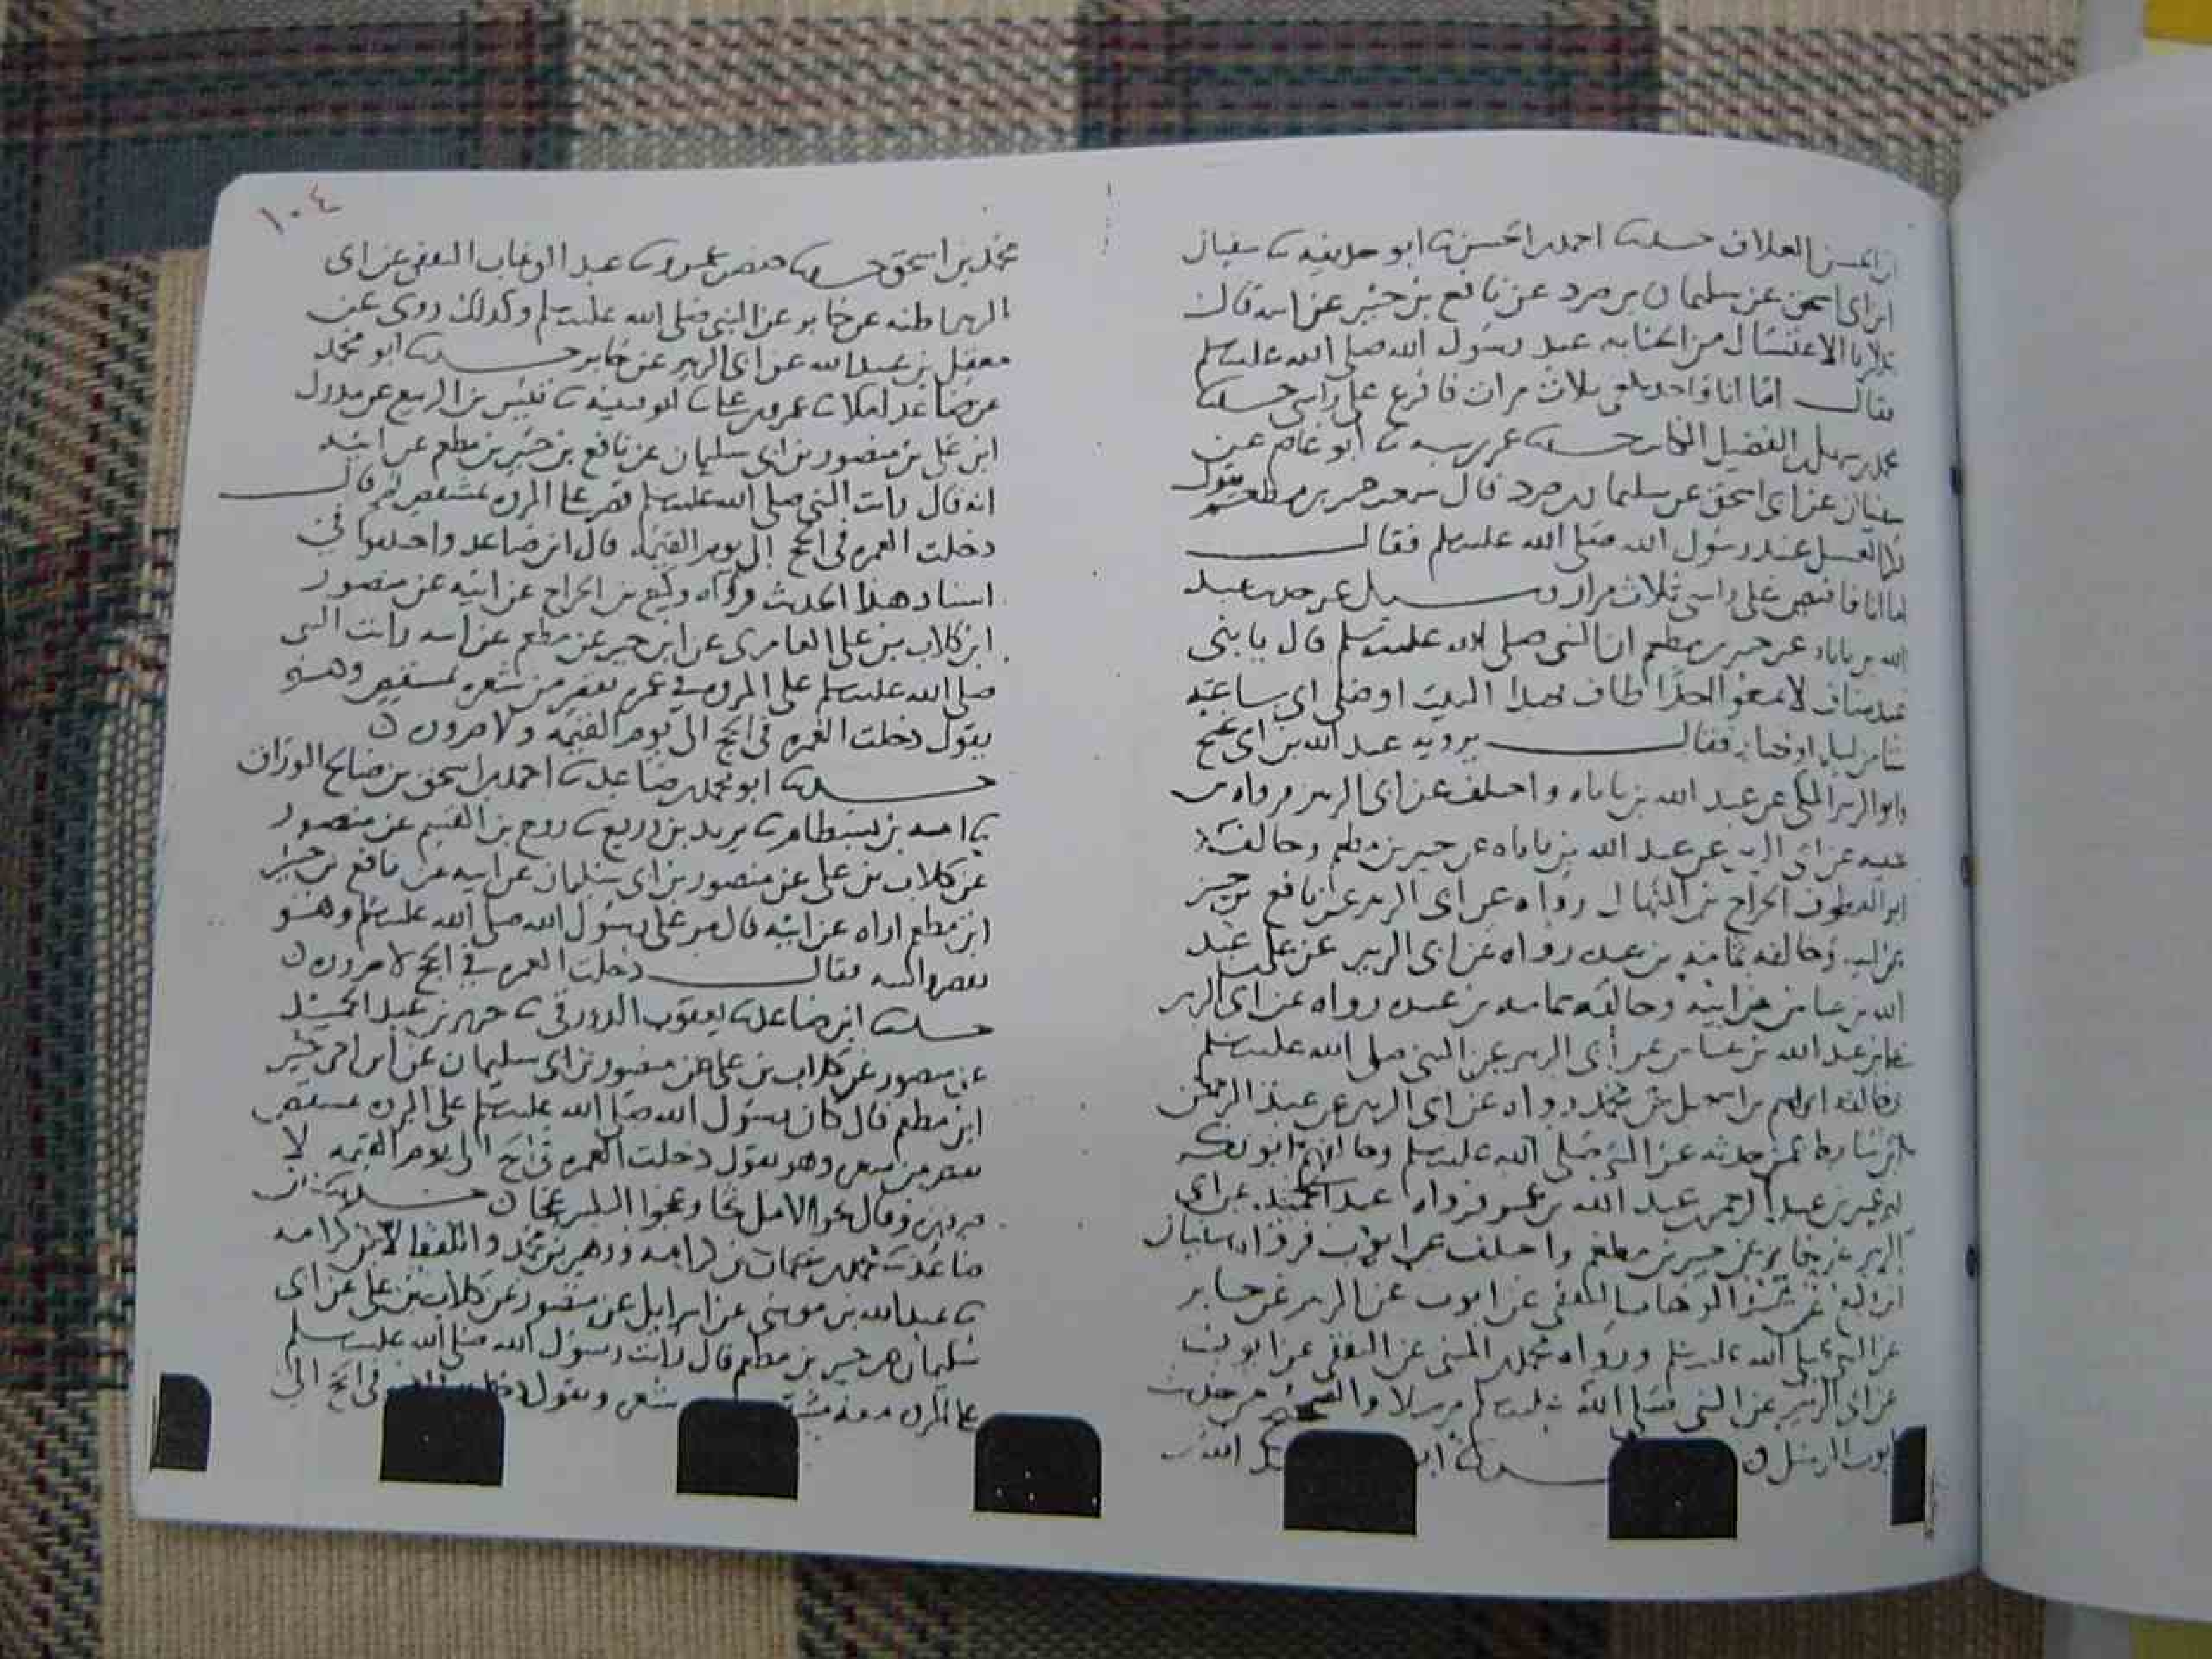 ابن الحسن العلاف حدثنا احمد بن الحسن نا ابو حذيفة نا سفيان
ابن ابى اسحق عن سليمان بن صرد عن نافع بن جبير عن ابيه قال
تذاكرنا الاغتسال من الجنابة عند رسول الله صلى الله عليه وسلم
فقال اما انا فاخذ ثلاث مرات فافرغ على راسى حدثنا
محمد بن سهل بن الفضيل الكاتب حدثنا عمر بن شبه نا ابو عاصم عن
سفيان عن ابى اسحق عن سليمان بن صرد قال سمعت جبير بن مطعم يقول
ذكر الغسل عند رسول الله صلى الله عليه وسلم فقال
اما انا فافيض على راسى ثلاث مرار وسئل عن حديث عبد
الله بن باباه عن جبير بن مطعم ان النبى صلى الله عليه وسلم قال يا بنى
عبد مناف لا تمنعوا احدا طاف بهذا البيت او صلى اى ساعة
شا من ليل او نهار فقال يرويه عبد الله بن ابى نجيح
وابو الزبير المكى عن عبد الله بن باباه واختلف عن ابى الزبير فرواه
عيينه عن ابى الزبير عن عبد الله بن باباه عن جبير بن مطعم وخالفه
ابو العطوف الجراح بن المنهال رواه عن ابى الزبير عن نافع بن جبير
عن ابيه وخالفه ثمامه بن عبيده رواه عن ابى الزبير عن على بن عبد
الله بن عباس عن ابيه وخالفه ثمامه بن عبيده رواه عن ابى الزبير
عن عبد الله بن عباس عن ابى الزبير عن النبى صلى الله عليه وسلم
وخالفه ابراهيم بن اسمعيل بن مجمد رواه عن ابى الزبير عن عبد الرحمن
ابن سابط عمن حدثه عن النبى صلى الله عليه وسلم وخالفهم ابو بكر
عبد الرحمن عبد الله بن عمر فرواه عبد المجيد عن ابى
الزبير عن جابر عن جبير بن مطعم واختلف عن ايوب فرواه سفيان
عبد الوهاب الثقفى عن ايوب عن الزبير عن جابر
عن النبى صلى الله عليه وسلم ورواه محمد بن المثنى عن الثقفى عن ايوب
عن ابى الزبير عن النبى صلى الله عليه وسلم مرسلا والصحيح من حديث
ايوب المرسل حدثنا
١٠٤
محمد بن اسحق حدثنا حفص بن عمرو نا عبد الوهاب الثقفى عن ابى
الزبير اظنه عن جابر عن النبى صلى الله عليه وسلم وكذلك روى عن
معقل بن عبيد الله عن ابى الزبير عن جابر حدثنا ابو محمد
بن صاعد املا نا عمرو بن على نا ابو قتيبه نا قيس بن الربيع عن
ابن على بن منصور بن ابى سليمان عن نافع بن جبير بن مطعم عن ابيه
انه قال رايت النبى صلى الله عليه وسلم قصر على المروه بمشقص ثم قال
دخلت العمره فى الحج الى يوم القيمه قال ابن صاعد واختلفوا فى
اسناد هذا الحديث ورواه وكيع بن الجراح عن ابيه عن منصور
ابن كلاب بن على العامرى عن ابن جبير عن مطعم عن ابيه رايت النبى
صلى الله عليه وسلم على المروه فى عمره يقصر من شعره بمشقص وهو
يقول دخلت العمره فى الحج الى يوم القيمه ولا صروره
حدثنا ابو محمد بن صاعد نا احمد بن اسحق بن صالح الوزان
نا اميه بن بسطام نا يزيد بن زريع نا روح بن القسم عن منصور
عن كلاب بن على عن منصور بن ابى سليمان عن ابيه عن نافع بن جبير
ابن مطعم اراه عن ابيه قال مر على رسول الله صلى الله عليه وسلم وهو
فقال دخلت العمره فى الحج لا صروره
حدثنا ابن صاعد نا يعقوب الدورقى نا جرير بن عبد الحميد
عن منصور عن كلاب بن على عن منصور بن ابى سليمان عن ابن اخى جبير
ابن مطعم قال كان رسول الله صلى الله عليه وسلم على المروه بمشقص
يقصر من شعره وهو يقول دخلت العمره فى الحج الى يوم القيمه لا
صروره وقال ثجوا الابل ثجا وعجوا التلبيه عجا حدثنا ابن
صاعد نا محمد بن عثمان بن كرامه وزهير بن محمد واللفظ لابن كرامه
نا عبيد الله بن موسى عن اسرايل عن منصور عن كلاب بن على عن ابى
سليمان عن جبير بن مطعم قال رايت رسول الله صلى الله عليه وسلم
على المروه معه شعره ويقول دخلت فى الحج الى